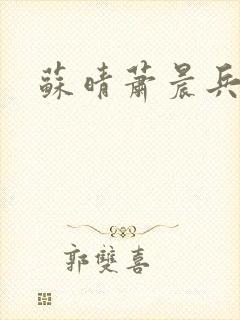 蘇晴蕭晨兵
郭雙喜